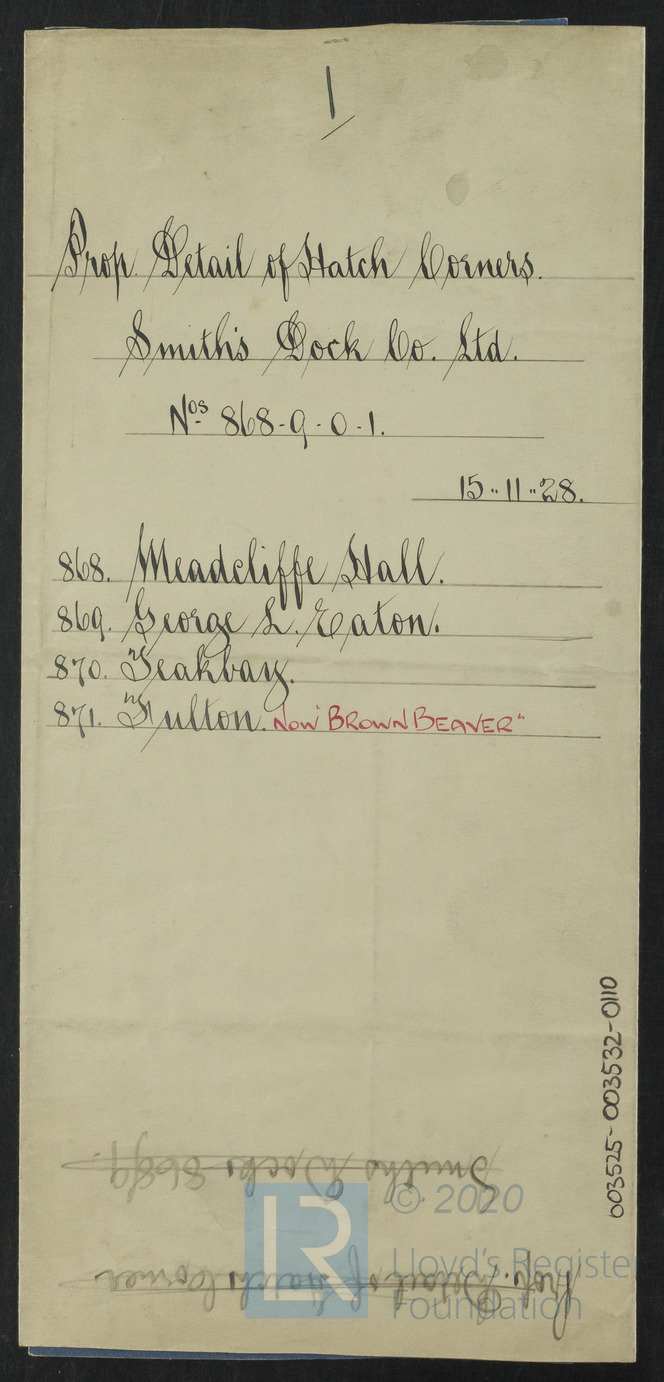 1
Prop. Detail of Hatch Corners.
Smith's Dock Co. Ltd.
Nos 868-9-0-1.
15-11-28.
868. Meadcliffe Hall.
869. George L. Eaton.
870. Teakbay.
871. "Fulton. Now "BROWN BEAVER"
003525-003532-0110
Smiths Docks 868/9.
Prop. Detail of Hatch Corner
© 2020
LR
Lloyd's Register
Foundation